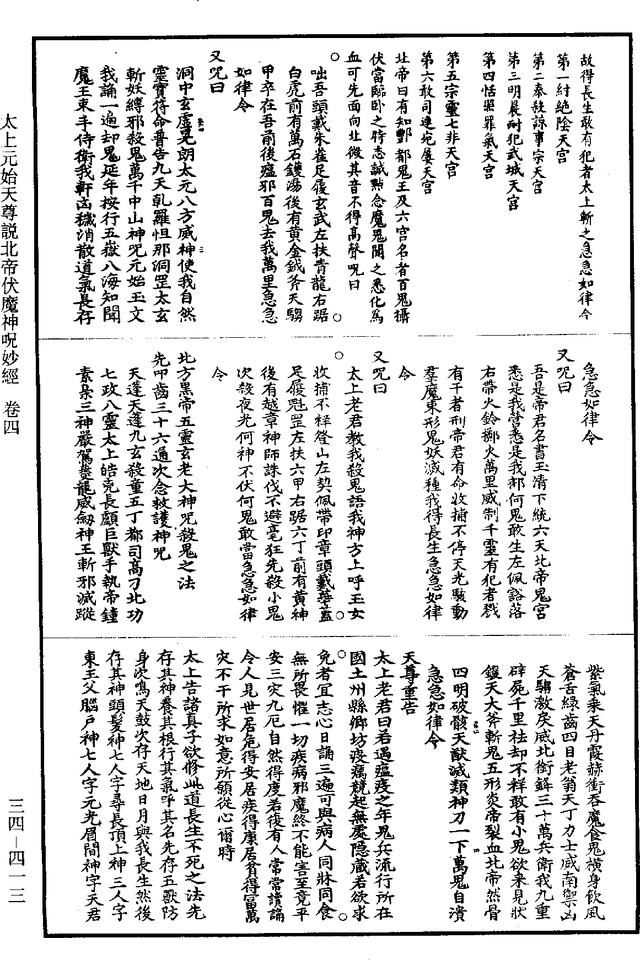 故得長生敢有犯者太上斬之急急如律令
第一紂絕陰天宮
第二泰殺諒事宗天宮
第三明晨耐犯武城天宮
第四恬照罪氣天宮
第五宗靈七非天宮
第六敢司連宛屢天宮
北帝曰有知酆都鬼王及六宮名者百鬼攝
伏當臨卧之時志誠默念魔鬼聞之悉化為
血可先面向北微其音不得高聲呪曰
咄吾頭戴朱雀足履玄武左扶青龍右踞
白虎前有萬石鑊湯後有黃金鉞斧天騶
甲卒在吾前後瘟邪百鬼去我萬里急急
如律令
又呪曰
洞中玄虛晃朗太元八方威神使我自然
靈寶符命普告九天乾羅怛那洞罡太玄
斬妖縛邪殺鬼萬千中山神呪元始玉文
我誦一遍却鬼延年按行五嶽八海知聞
魔王束手侍衛我軒凶穢消散道氣長存
急急如律令
又呪曰
吾是帝君名書玉清下統六天北帝鬼宮
悉是我營悉是我部何鬼敢生左佩豁落
右帶火鈴擲火萬里威制千靈有犯者戮
有干者刑帝君有命收捕不停天光駭動
羣魔束形鬼妖滅種我得長生急急如律
令
又呪曰
太上老君教我殺鬼語我神方上呼玉女
收捕不祥登山左契佩帶印章頭戴華蓋
足履魁罡左扶六甲右踞六丁前有黃神
後有越章神師誅伐不避毫狂先殺小鬼
次殺夜光何神不伏何鬼敢當急急如律
令
北方黑帝五靈玄老大神呪殺鬼之法
先叩齒三十六通次念救護神呪
天蓬天蓬九玄殺童五丁都司高刁北功
七政八靈太上皓兇長顱巨獸手執帝鐘
素梟三神嚴駕夔龍威劒神王斬邪滅蹤
紫氣乘天丹霞赫衝吞魔食鬼橫身飲風
蒼舌綠齒四目老翁天丁力士威南禦凶
天騶激戾威北銜鋒三十萬兵衛我九重
辟屍千里祛却不祥敢有小鬼欲來見狀
钁天大斧斬鬼五形炎帝裂血北帝然骨
四明破骸天猷滅類神刀一下萬鬼自潰
急急如律令
天尊重告
太上老君曰若遇瘟疫之年鬼兵流行所在
國土州縣鄉坊疫癘競起無處隱藏若欲求
免者宜志心日誦三遍可與病人同牀同食
無所畏懼一切疾病邪魔終不能害至竟平
安三灾九厄自然得度若後有人常當讀誦
令人見世居危得安居疾得康居貧得富萬
灾不干所求如意所願從心爾時
太上告諸真子欲修此道長生不死之法先
存其神養其根行其氣呼其名先存五獸防
身次鳴天鼓次存天地日月與我長生然後
存其神頭髮神七人字尋長頂上神三人字
東王父腦戶神七人字元光眉間神字天君
太上元始天尊說北帝伏魔神呪妙經 卷四
三四—四一三